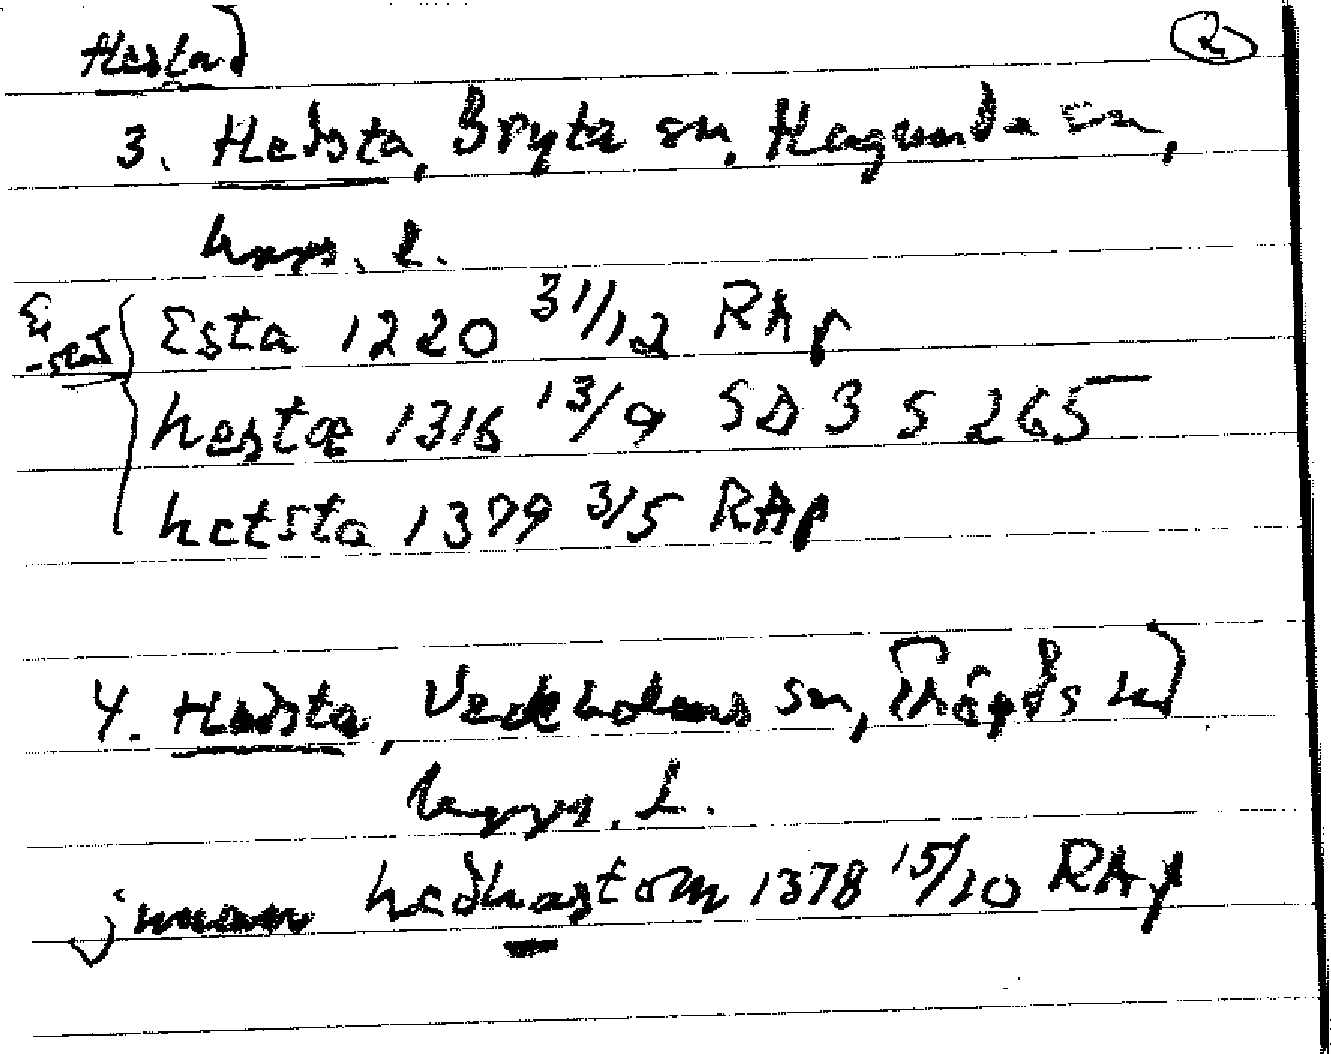 Hestad
2
3. Hedsta, Bryta sn, Hagunda hd,
Upps. l.
Ej
-stad
Esta 1220 31/12 RAp
hestæ 1316 13/9 SD 3 s 265
hetsta 1379 3/5 RAp
4. Hedsta, Veckholms sn, Trögds hd
Upps. l.
j hedhastom 1378 15/10 RAp